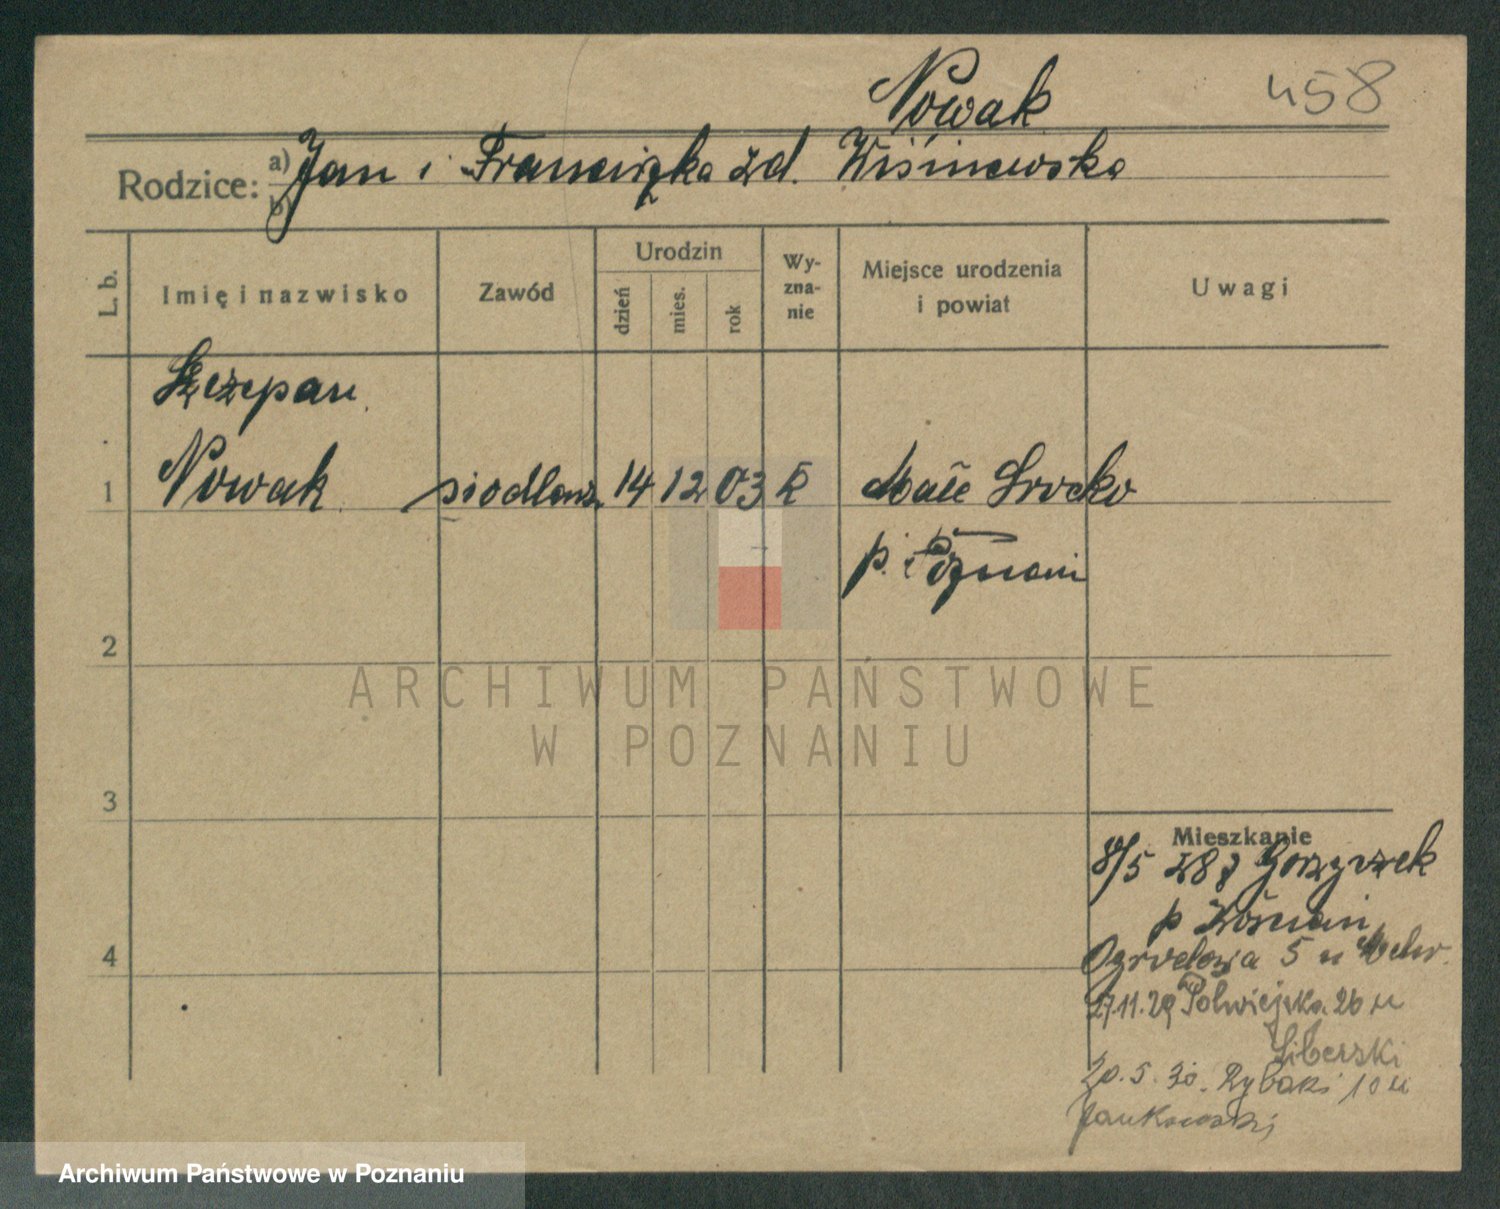 Nowak 458
Rodzice: a) Jan i Franciszka zd. Wiśniewska
b)
L. b. Imię i nazwisko Zawód Urodzin dzień mies. rok Wy-zna-nie Miejsce urodzenia i powiat Uwagi
Szczepan
1 Nowak siodlarz 14 12 03 k Małe Srocko
p. Poznań
2
ARCHIWUM PAŃSTWOWE
W POZNANIU
3
Mieszkanie
8/5 28 z Gorzyczek
p
4 Ogrodowa 5 u
27.11.29 Półwiejska 26 u
Liberski
20.5.30. Rybaki 10 u
Jankowski
Archiwum Państwowe w Poznaniu